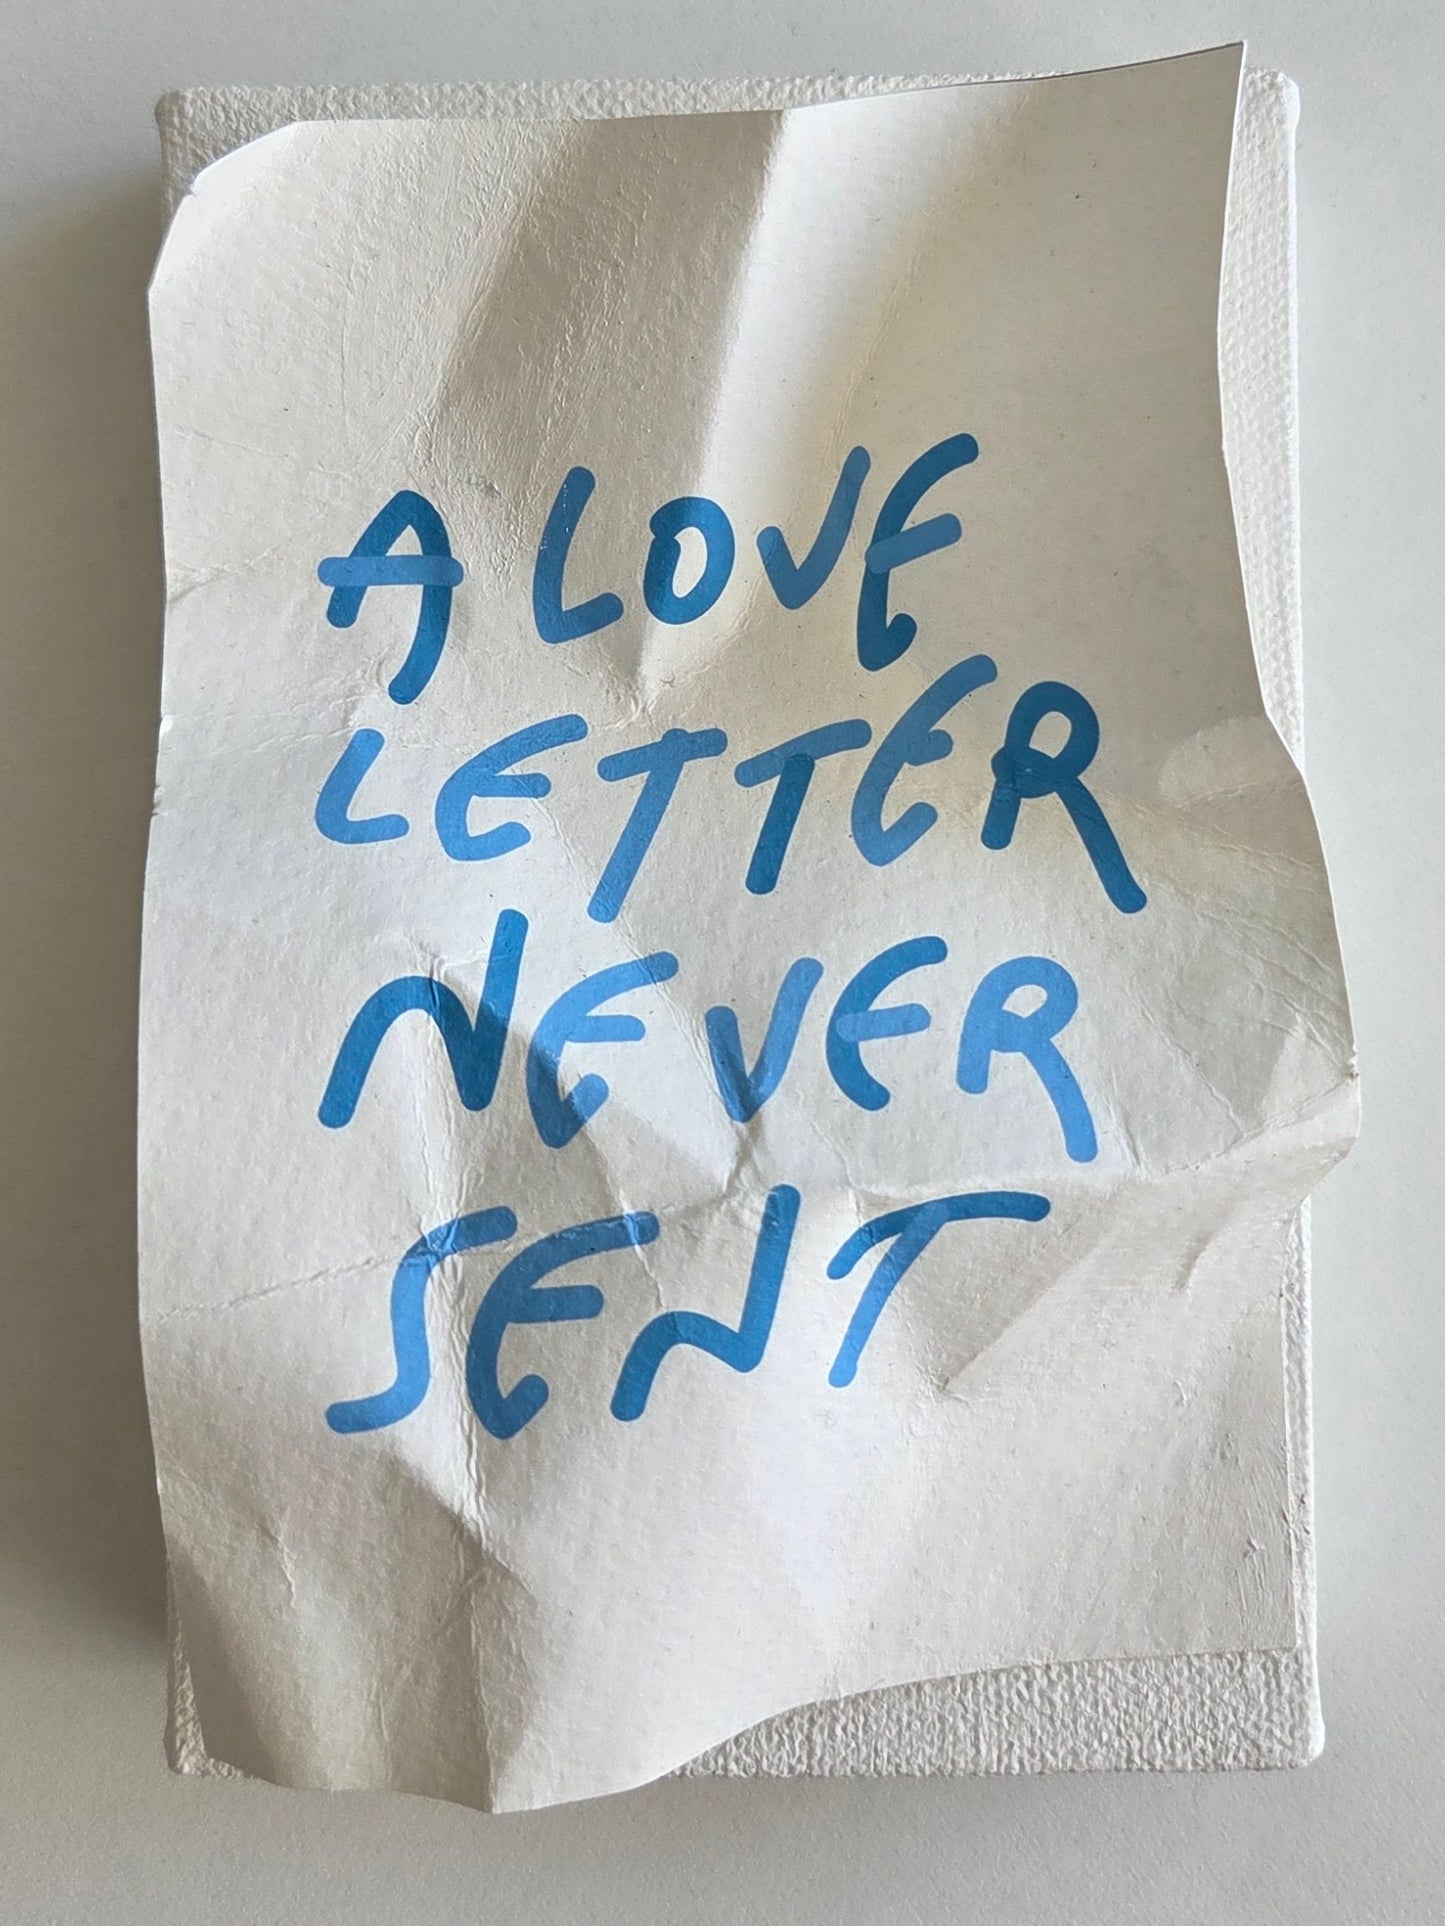 A LOVE
LETTER
NEVER
SENT